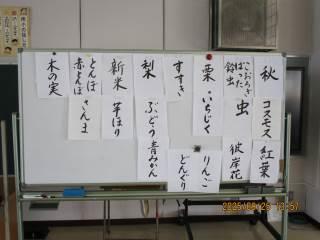 秋
コスモス
紅葉
こおろぎ
ばった
鈴虫
虫
彼岸花
栗
いちじく
りんご
どんぐり
すすき
梨
ぶどう
青みかん
新米
芋ほり
とんぼ
赤とんぼ
さんま
木の実
2025/09/25 13:57